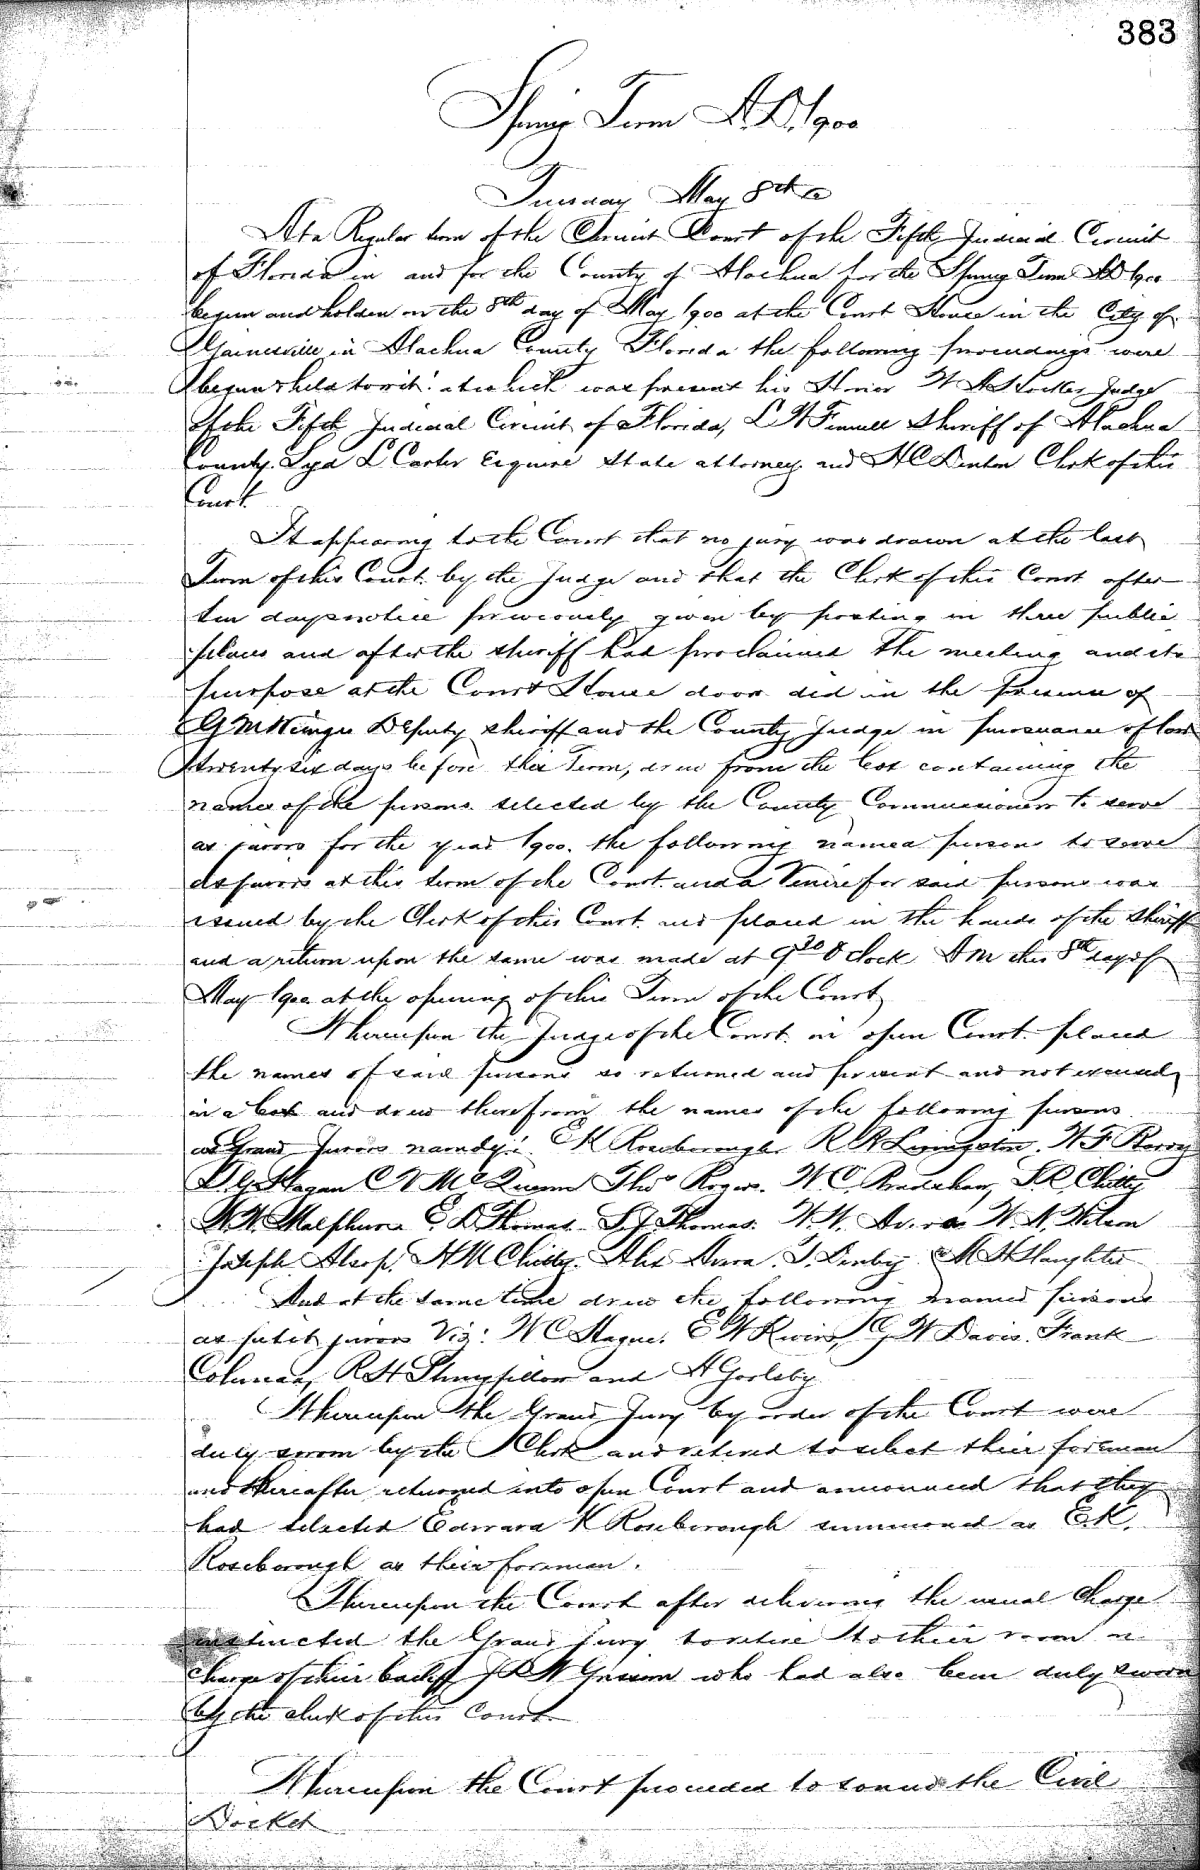 383
Spring Term A.D. 1900
Tuesday May 8th
At a Regular term of the Circuit Court of the Fifth Judicial Circuit
of Florida in and for the County of Alachua for the Spring Term AD 1900
begun and holden on the 8th day of May 1900 at the Court House in the City of
Gainesville in Alachua County Florida the following proceedings were
begun & held towit: at which was present his Honor W A Hocker Judge
of the Fifth Judicial Circuit of Florida, L W Fennell Sheriff of Alachua
County. Syd L Carter Esquire State attorney and H C Denton Clerk of this
Court.
It appearing to the Court that no jury was drawn at the last
Term of this Court by the Judge and that the Clerk of this Court after
ten days notice previously given by posting in three public
places and after the sheriff had proclaimed the meeting and its
purpose at the Court House door did in the presence of
G M Deputy sheriff and the County Judge in pursuance of law
twenty six days before this Term, drew from the box containing the
names of the persons selected by the County Commissioners to serve
as jurors for the year 1900. the following named persons to serve
as jurors at this term of the Court. and a Venire for said persons was
issued by the Clerk of this Court and placed in the hands of the Sheriff
and a return upon the same was made at 9 30 O'clock AM this 8th day of
May 1900 at the opening of this Term of the Court
Whereupon the Judge of the Court in open Court placed
the names of said persons so returned and present and not excused
in a box and drew therefrom the names of the following persons
as Grand Jurors namely: E K Roseborough R R Livingston. W F
Hagan C V McQueen Thos Rogers. W. C. Bradshaw, Chitty
W. W. Malphurs E. D Thomas. S. J. Thomas. W. W. W. N. Wilson
Joseph Alsop. H M Chitty. Alex J. Denby M Slaughter
And at the same time drew the following named persons
as petit jurors Viz: W C Hague. E W G W Davis. Frank
Coleman, R H and H Gorlsby
Whereupon the Grand Jury by order of the Court were
duly sworn by the Clerk and retired to select their foreman
and thereafter returned into open Court and announced that they
had selected Edward K Roseborough summoned as E. K.
Roseborough as their foreman.
Thereupon the Court after delivering the usual charge
instructed the Grand jury to retire to their room in
charge of their bailiff who had also been duly sworn
by the clerk of this Court.
Whereupon the Court proceeded to sound the Civil
Docket